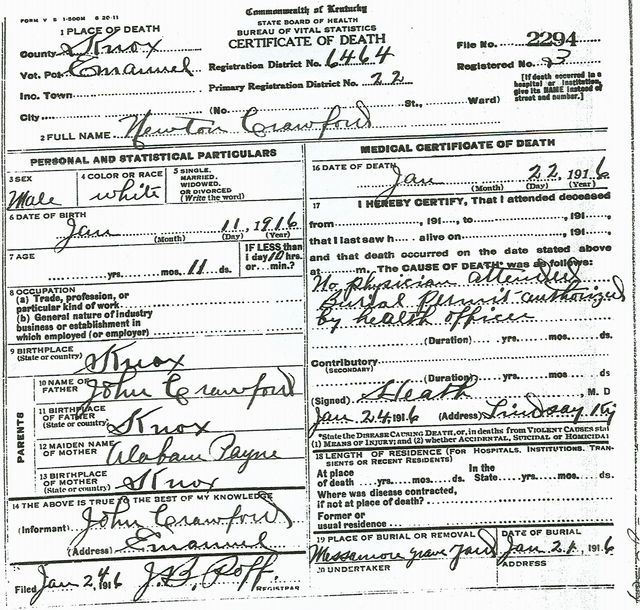 FORM V S 1-500M 6 20-11
Commonwealth of Kentucky
STATE BOARD OF HEALTH
BUREAU OF VITAL STATISTICS
CERTIFICATE OF DEATH
1 PLACE OF DEATH
County Knox
Vot. Pct. Emanuel
Inc. Town
City
Registration District No. 6464
Primary Registration District No. 22
(No. St., Ward)
File No. 2294
Registered No.
[If death occurred in a
hospital or institution,
give its NAME instead of
street and number.]
2 FULL NAME Newton Crawford
PERSONAL AND STATISTICAL PARTICULARS
3 SEX
Male
4 COLOR OR RACE
white
5 SINGLE,
MARRIED,
WIDOWED,
OR DIVORCED
(Write the word)
6 DATE OF BIRTH
Jan 11, 1916
(Month) (Day) (Year)
7 AGE
yrs. mos. 11 ds.
IF LESS than
1 day 10 hrs.
or min.?
8 OCCUPATION
(a) Trade, profession, or
particular kind of work
(b) General nature of industry
business or establishment in
which employed (or employer)
9 BIRTHPLACE
(State or country) Knox
PARENTS
10 NAME OF
FATHER John Crawford
11 BIRTHPLACE
OF FATHER
(State or country) Knox
12 MAIDEN NAME
OF MOTHER Alabam Payne
13 BIRTHPLACE
OF MOTHER
(State or country) Knox
14 THE ABOVE IS TRUE TO THE BEST OF MY KNOWLEDGE
(Informant) John Crawford
(Address) Emanuel
Filed Jan 24, 1916 J. B. Roff
REGISTRAR
MEDICAL CERTIFICATE OF DEATH
16 DATE OF DEATH
Jan 22, 1916
(Month) (Day) (Year)
17 I HEREBY CERTIFY, That I attended deceased
from , 191 to , 191
that I last saw h alive on , 191
and that death occurred on the date stated above
at m. The CAUSE OF DEATH* was as follows:
No physician attended
Burial Permit authorized
by health officer
(Duration) yrs. mos. ds
Contributory
(SECONDARY)
(Duration) yrs. mos. ds
(Signed) Heath, M. D
Jan 24, 1916 (Address) Lindsay Ky
*State the DISEASE CAUSING DEATH, or, in deaths from VIOLENT CAUSES stat
(1) MEANS OF INJURY; and (2) whether ACCIDENTAL, SUICIDAL or HOMICIDAL
18 LENGTH OF RESIDENCE (FOR HOSPITALS, INSTITUTIONS, TRAN-
SIENTS OR RECENT RESIDENTS)
At place In the
of death yrs. mos. ds. State yrs. mos. ds.
Where was disease contracted,
if not at place of death?
Former or
usual residence
19 PLACE OF BURIAL OR REMOVAL
Messamore grave yard
DATE OF BURIAL
Jan 21, 1916
20 UNDERTAKER
ADDRESS